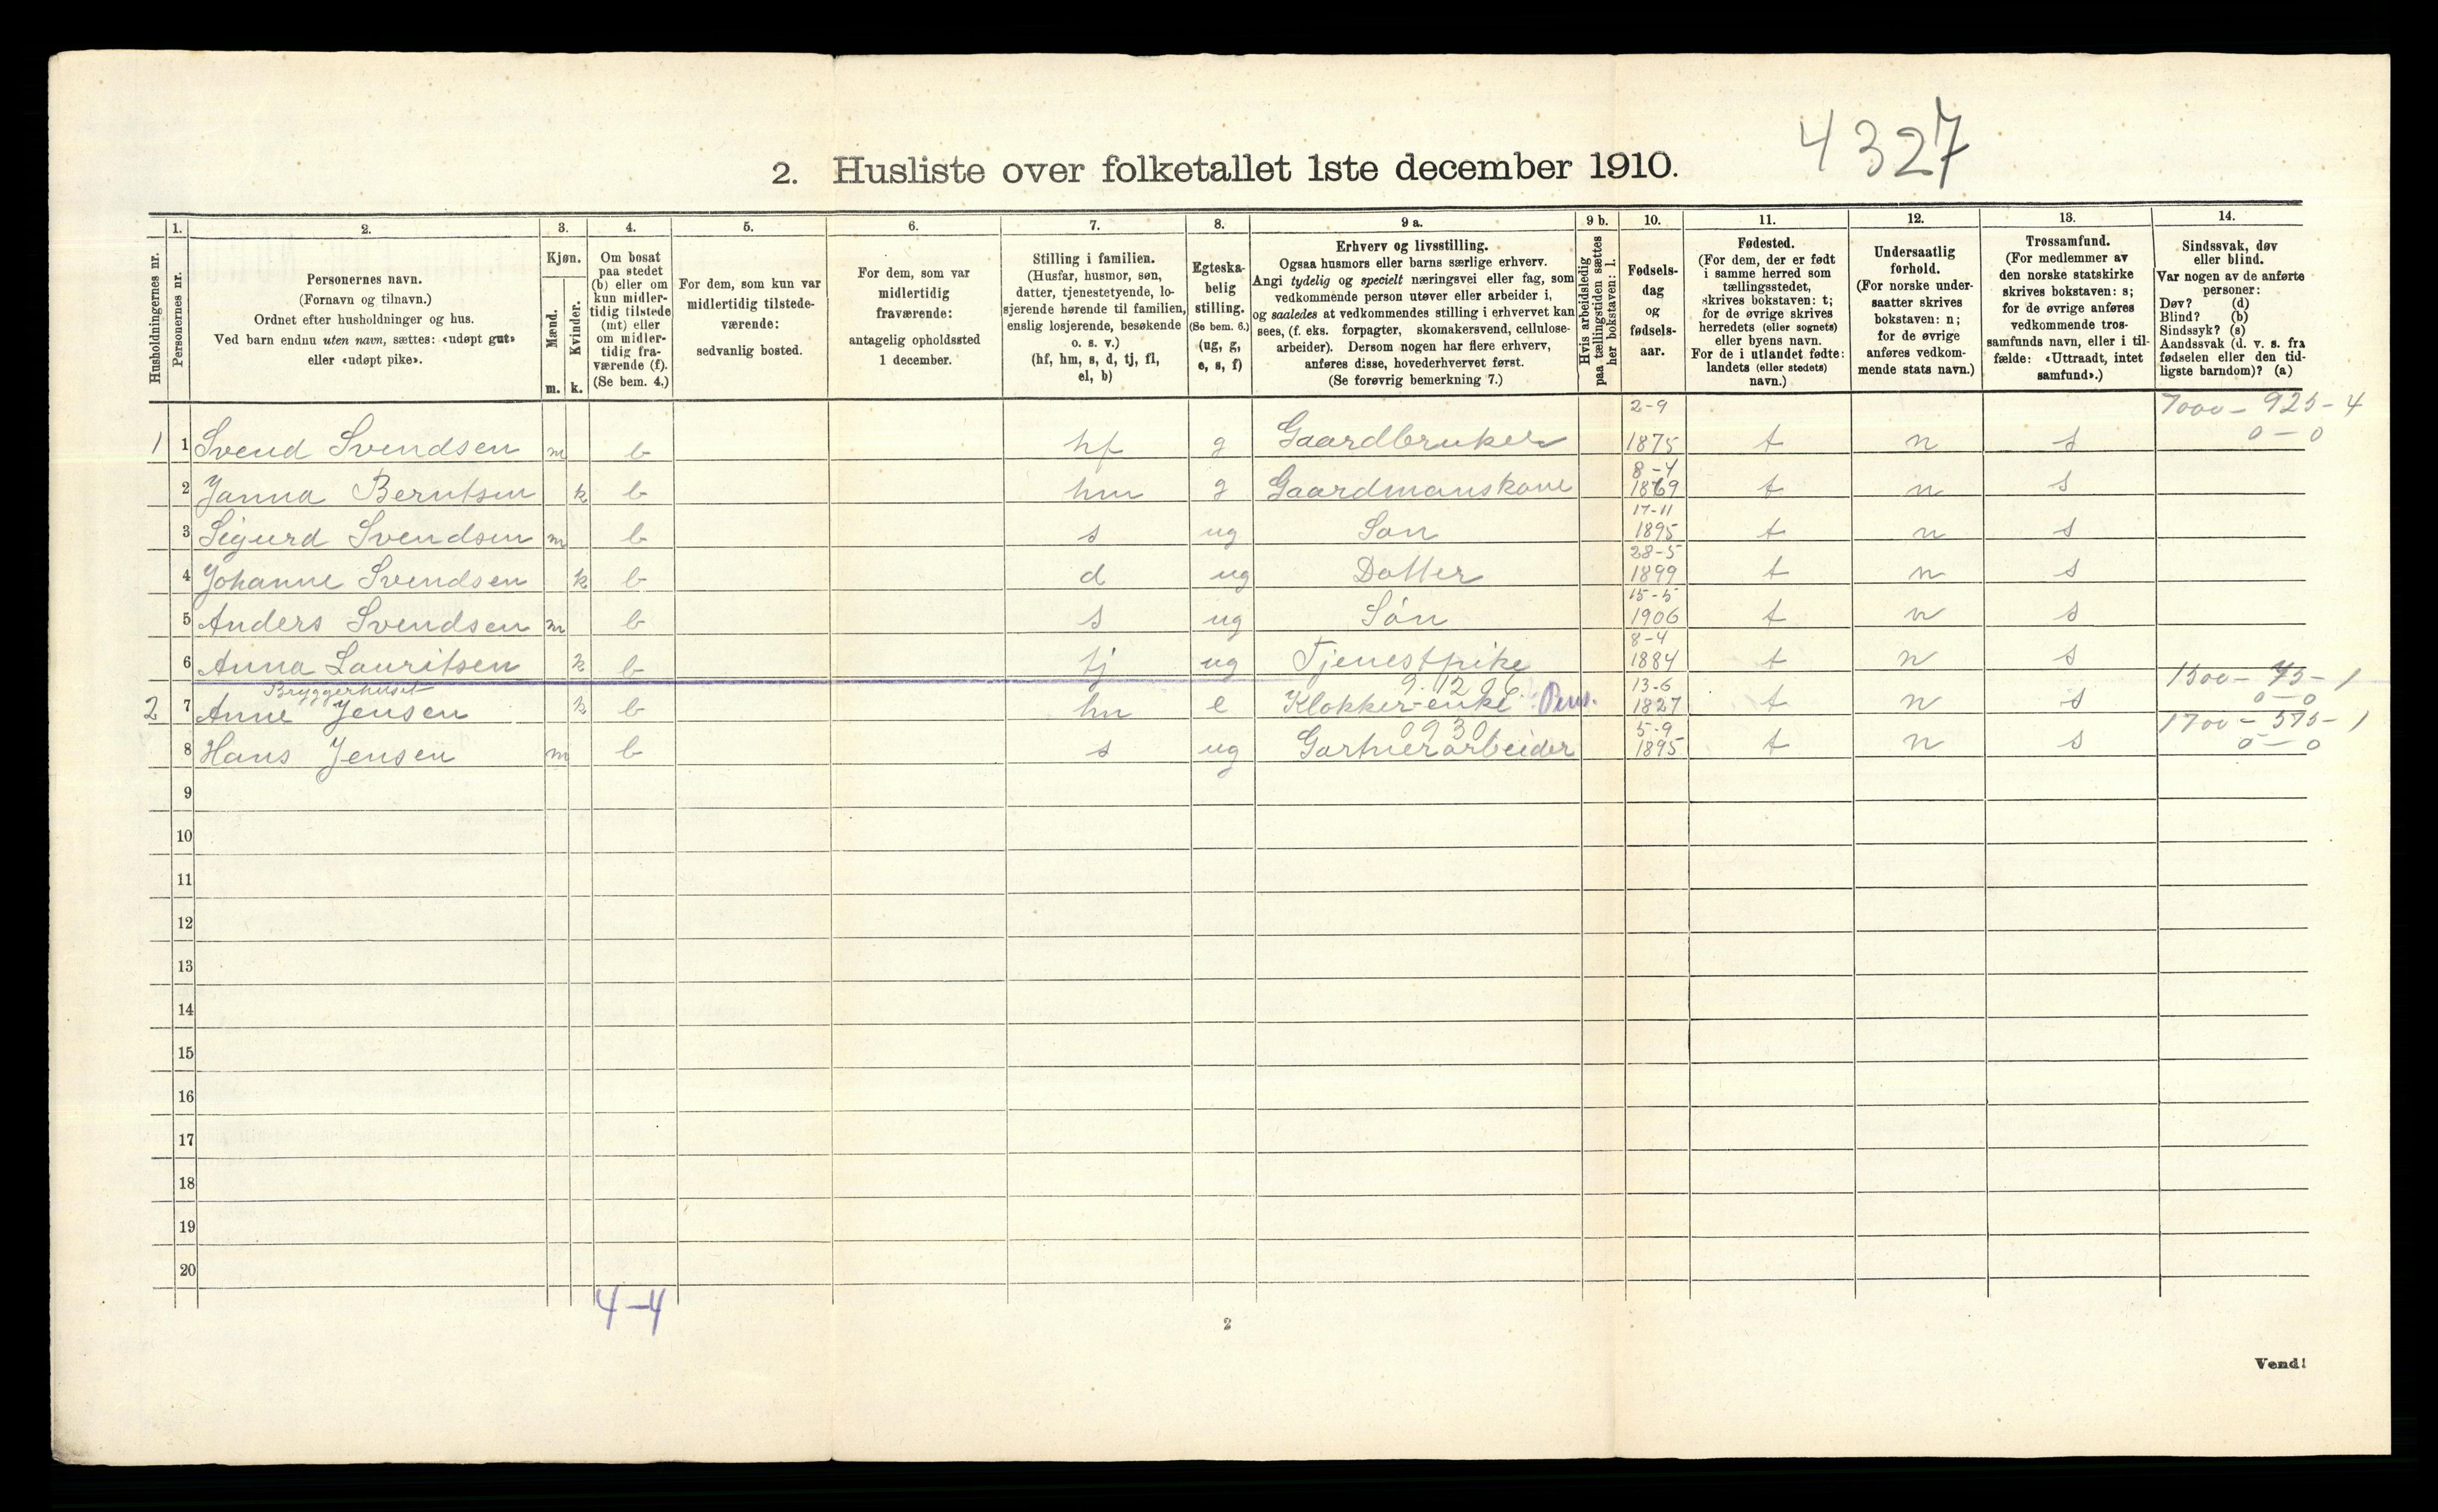 4327
2. Husliste over folketallet 1ste december 1910.
Husholdningernes nr.
1.
Personernes nr.
2.
Personernes navn.
(Fornavn og tilnavn.)
Ordnet efter husholdninger og hus.
Ved barn endnu uten navn, sættes: «udøpt gut»
eller «udøpt pike».
3.
Kjøn.
Mænd.
m.
Kvinder.
k.
4.
Om bosat
paa stedet
(b) eller om
kun midler-
tidig tilstede
(mt) eller
om midler-
tidig fra-
værende (f).
(Se bem. 4.)
5.
For dem, som kun var
midlertidig tilstede-
værende:
sedvanlig bosted.
6.
For dem, som var
midlertidig
fraværende:
antagelig opholdssted
1 december.
7.
Stilling i familien.
(Husfar, husmor, søn,
datter, tjenestetyende, lo-
sjerende hørende til familien,
enslig losjerende, besøkende
o. s. v.)
(hf, hm, s, d, tj, fl,
el, b)
8.
Egteska-
belig
stilling.
(Se bem. 6.)
(ug, g,
e, s, f)
9 a.
Erhverv og livsstilling.
Ogsaa husmors eller barns særlige erhverv.
Angi tydelig og specielt næringsvei eller fag, som
vedkommende person utøver eller arbeider i,
og saaledes at vedkommendes stilling i erhvervet kan
sees, (f. eks. forpagter, skomakersvend, cellulose-
arbeider). Dersom nogen har flere erhverv,
anføres disse, hovederhvervet først.
(Se forøvrig bemerkning 7.)
9 b.
Hvis arbeidsledig
paa tællingstiden sættes
her bokstaven: l.
10.
Fødsels-
dag
og
fødsels-
aar.
11.
Fødested.
(For dem, der er født
i samme herred som
tællingsstedet,
skrives bokstaven: t;
for de øvrige skrives
herredets (eller sognets)
eller byens navn.
For de i utlandet fødte:
landets (eller stedets)
navn.)
12.
Undersaatlig
forhold.
(For norske under-
saatter skrives
bokstaven: n;
for de øvrige
anføres vedkom-
mende stats navn.)
13.
Trossamfund.
(For medlemmer av
den norske statskirke
skrives bokstaven: s;
for de øvrige anføres
vedkommende tros-
samfunds navn, eller i til-
fælde: «Uttraadt, intet
samfund».)
14.
Sindssvak, døv
eller blind.
Var nogen av de anførte
personer:
Døv? (d)
Blind? (b)
Sindssyk? (s)
Aandssvak (d. v. s. fra
fødselen eller den tid-
ligste barndom)? (a)
2-9 7000 - 925 - 4
1 1 Svend Svendsen m b hf g Gaardbruker 1875 t n s 0 - 0
8-4
2 Janna Berntsen k b hm g Gaardmanskone 1869 t n s
17-11
3 Sigurd Svendsen m b s ug Søn 1895 t n s
28-5
4 Johanne Svendsen k b d ug Datter 1899 t n s
15-5
5 Anders Svendsen m b s ug Søn 1906 t n s
8-4
6 Anna Lauritsen k b tj ug Tjenestpike 1884 t n s
Bryggerhuset 13-6 1500 - 75 - 1
2 7 Anne Jensen k b hm e Klokker-enke Pens. 1827 t n s 0 - 0
0930 5-9 1700 - 575 - 1
8 Hans Jensen m b s ug Gartnerarbeider 1895 t n s 0 - 0
9
10
11
12
13
14
15
16
17
18
19
20
4-4
2
Vend!